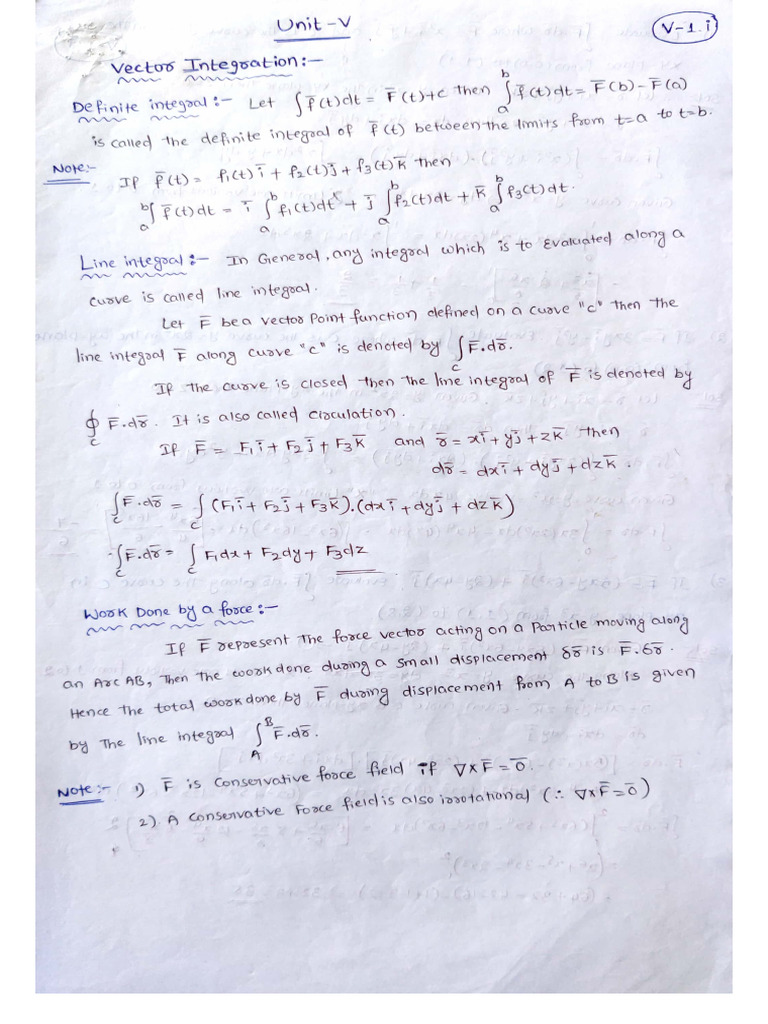 Unit-V
V-1.i
Vector Integration:-
Definite integral:- Let ∫f̅(t)dt = F̅(t)+c then ∫_a^b f̅(t)dt = F̅(b)-F̅(a)
is called the definite integral of f̅(t) between the limits from t=a to t=b.
Note:-
If f̅(t) = f1(t)i̅ + f2(t)j̅ + f3(t)k̅ then
∫_a^b f̅(t)dt = i̅ ∫_a^b f1(t)dt + j̅ ∫_a^b f2(t)dt + k̅ ∫_a^b f3(t)dt.
Line integral:- In General, any integral which is to Evaluated along a
curve is called line integral.
Let F̅ be a vector point function defined on a curve "c" then the
line integral F̅ along curve "c" is denoted by ∫_c F̅.dr̅.
If the curve is closed then the line integral of F̅ is denoted by
∮_c F̅.dr̅. It is also called Circulation.
If F̅ = F1i̅ + F2j̅ + F3k̅ and r̅ = xi̅ + yj̅ + zk̅ then
dr̅ = dxi̅ + dyj̅ + dzk̅.
∫_c F̅.dr̅ = ∫_c (F1i̅ + F2j̅ + F3k̅).(dxi̅ + dyj̅ + dzk̅)
∫_c F̅.dr̅ = ∫_c F1dx + F2dy + F3dz
Work Done by a force:-
If F̅ represent The force vector acting on a Particle moving along
an Arc AB, Then the work done during a small displacement δr̅ is F̅.δr̅.
Hence The total work done by F̅ during displacement from A to B is given
by The line integral ∫_A^B F̅.dr̅.
Note:- 1) F̅ is Conservative force field if ∇×F̅ = 0̅.
2) A Conservative Force field is also irrotational (∵ ∇×F̅ = 0̅)